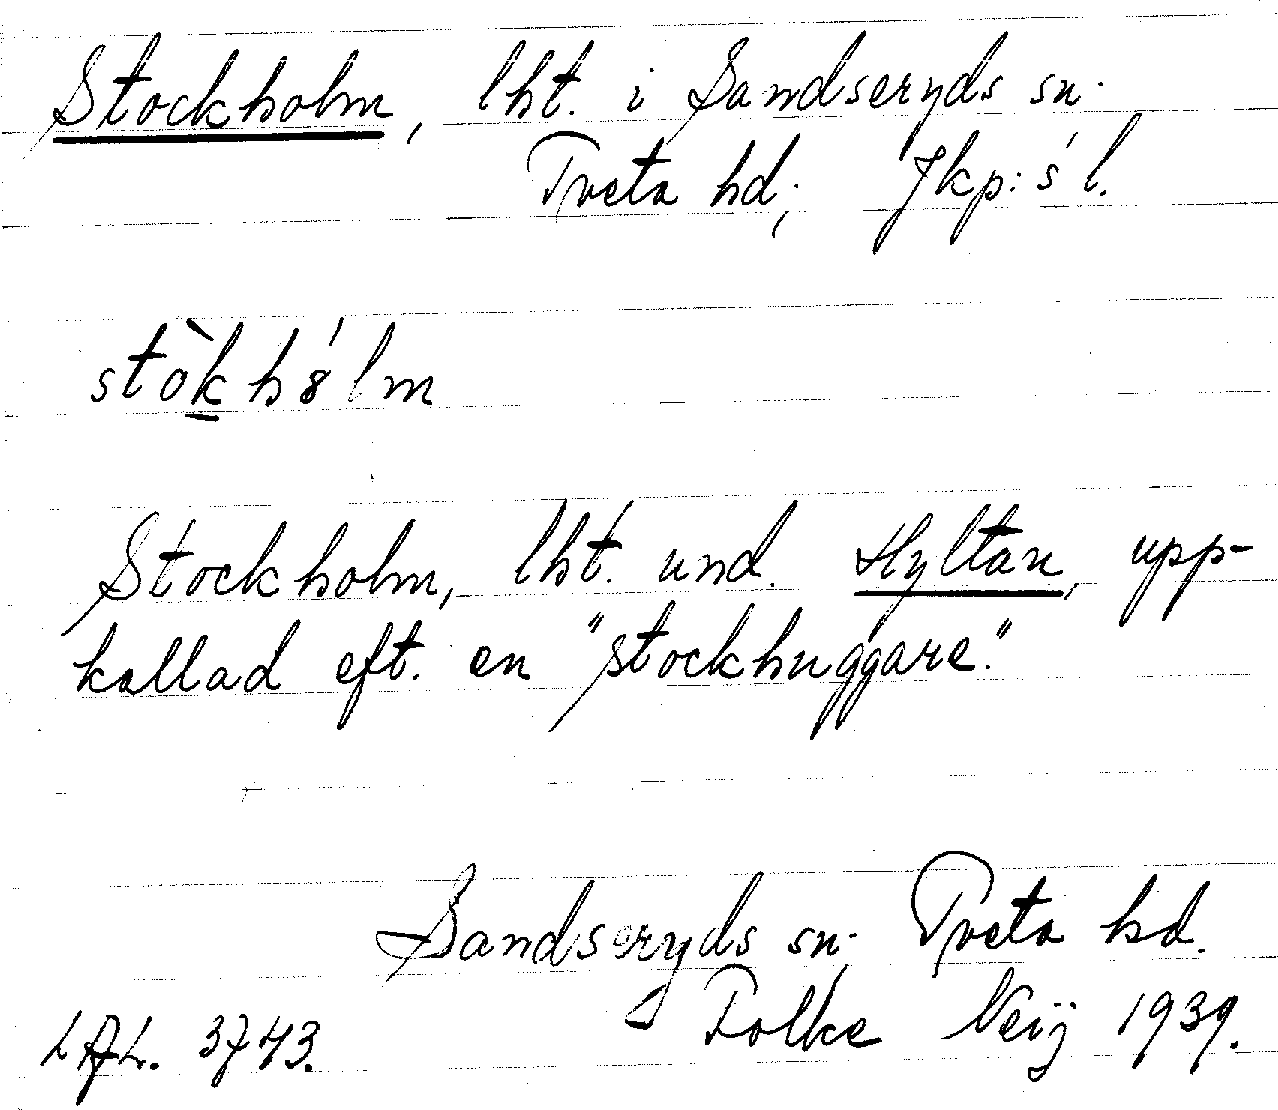 Stockholm, lht. i Sandseryds sn.
Tveta hd; Jkp:s l.
stòkhólm
Stockholm, lht. und. Hyltan, upp-
kallad eft. en "stockhuggare."
Sandseryds sn. Tveta hd.
Folke Neij 1939.
LAL. 3743.